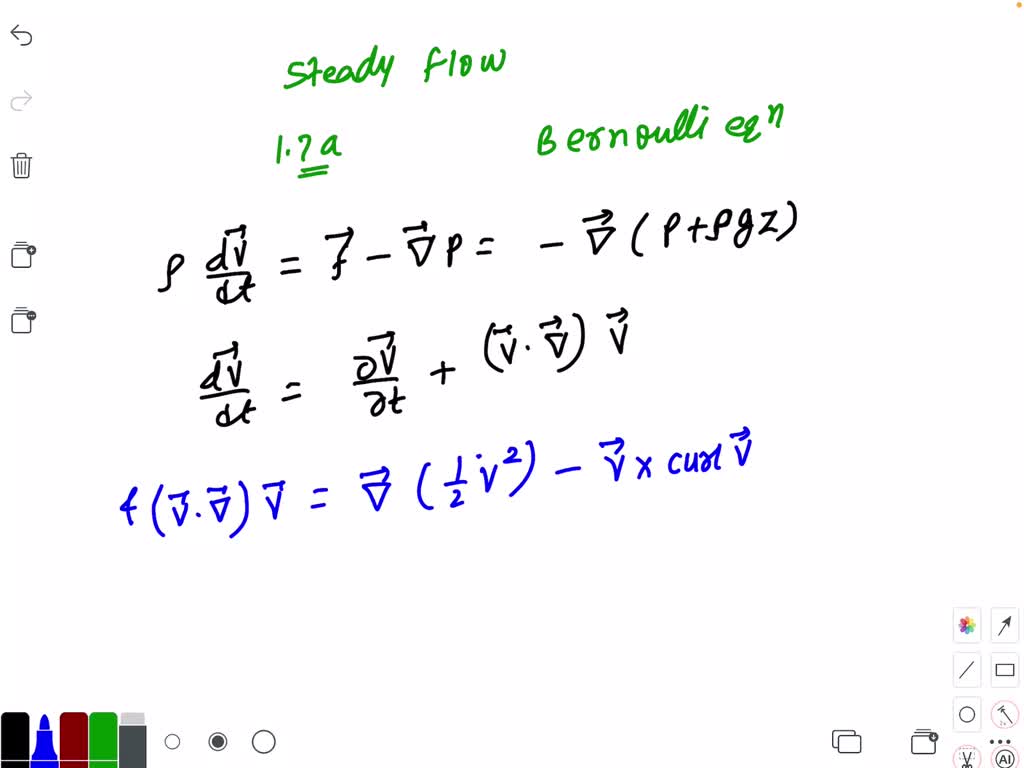 Steady flow
1.7a Bernoulli eqⁿ
ρ dv⃗/dt = f⃗ - ∇⃗p = - ∇⃗(p+ρgz)
dv⃗/dt = ∂v⃗/∂t + (v⃗.∇⃗) v⃗
f (v⃗.∇⃗) v⃗ = ∇⃗ (1/2 v²) - v⃗ x curl v⃗
AI